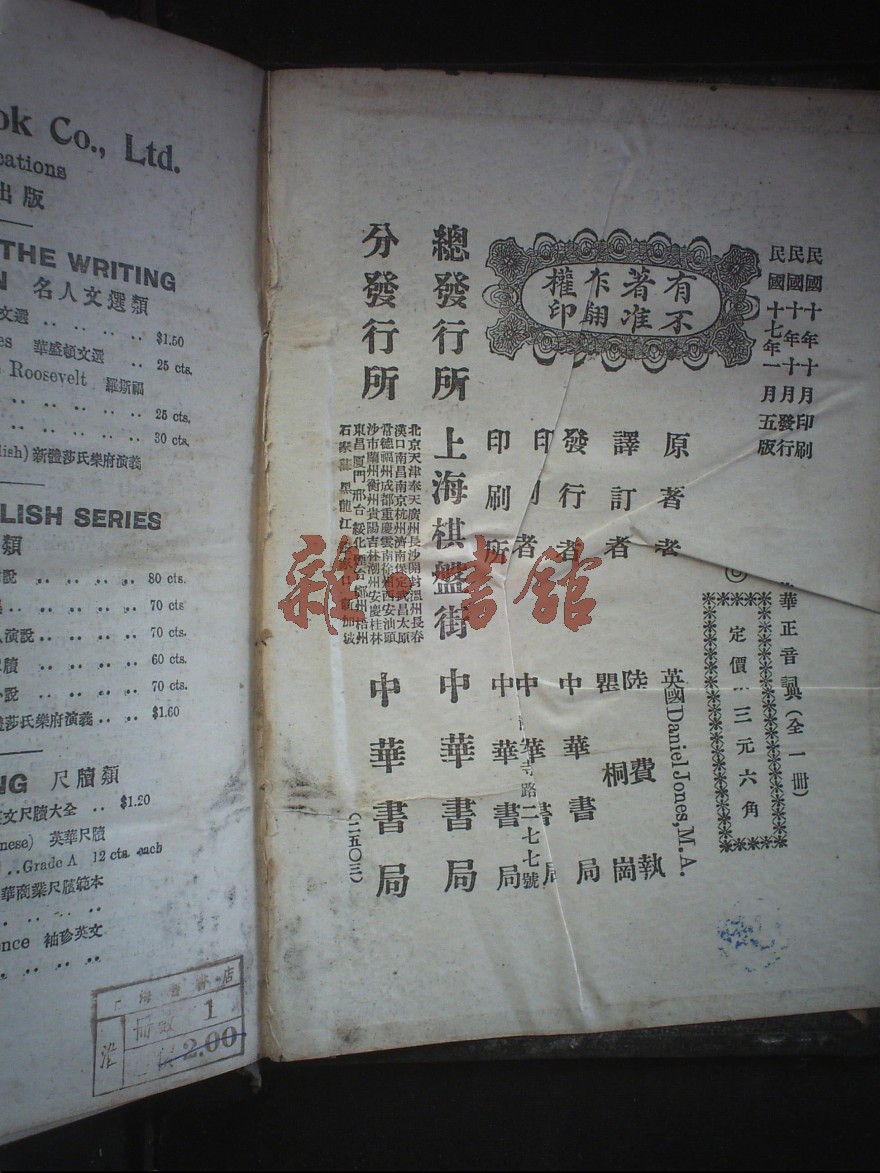 ok Co., Ltd.
cations
出版
THE WRITING
N 名人文選類
文選 .. .. .. .. $1.50
es 華盛頓文選 .. 25 cts.
Roosevelt 羅斯福
.. .. .. .. 25 cts.
.. .. .. .. 30 cts.
lish) 新體莎氏樂府演義
LISH SERIES
類
說 .. .. .. .. 80 cts.
.. .. .. .. 70 cts.
人演說 .. .. .. 70 cts.
牘 .. .. .. .. 60 cts.
小說 .. .. .. .. 70 cts.
莎氏樂府演義 .. .. $1.60
NG 尺牘類
文尺牘大全 .. $1.20
nese) 英華尺牘
.. Grade A 12 cts. each
華商業尺牘範本
nce 袖珍英文
店
冊數 1
2.00
民國十年十月印刷
民國十年十月發行
民國十七年一月五版
有著作權
不准翻印
華正音詞典(全一冊)
定價 三元六角
原著者 英國Daniel Jones, M.A.
譯訂者 陸費執
瞿桐崗
發行者 中華書局
印刷者 中華書局
寺路二七七號
印刷所 中華書局
總發行所 上海棋盤街 中華書局
分發行所 中華書局
北京天津奉天廣州長沙開封溫州長春
漢口南昌南京杭州濟南保定武昌太原
常德福州成都重慶雲南徐州西安汕頭
沙市蘭州衡州貴陽吉林潮州安慶桂林
東昌廈門邢台綏化 梧州
石家莊黑龍江 新加坡
(二五〇三)
雜·書館